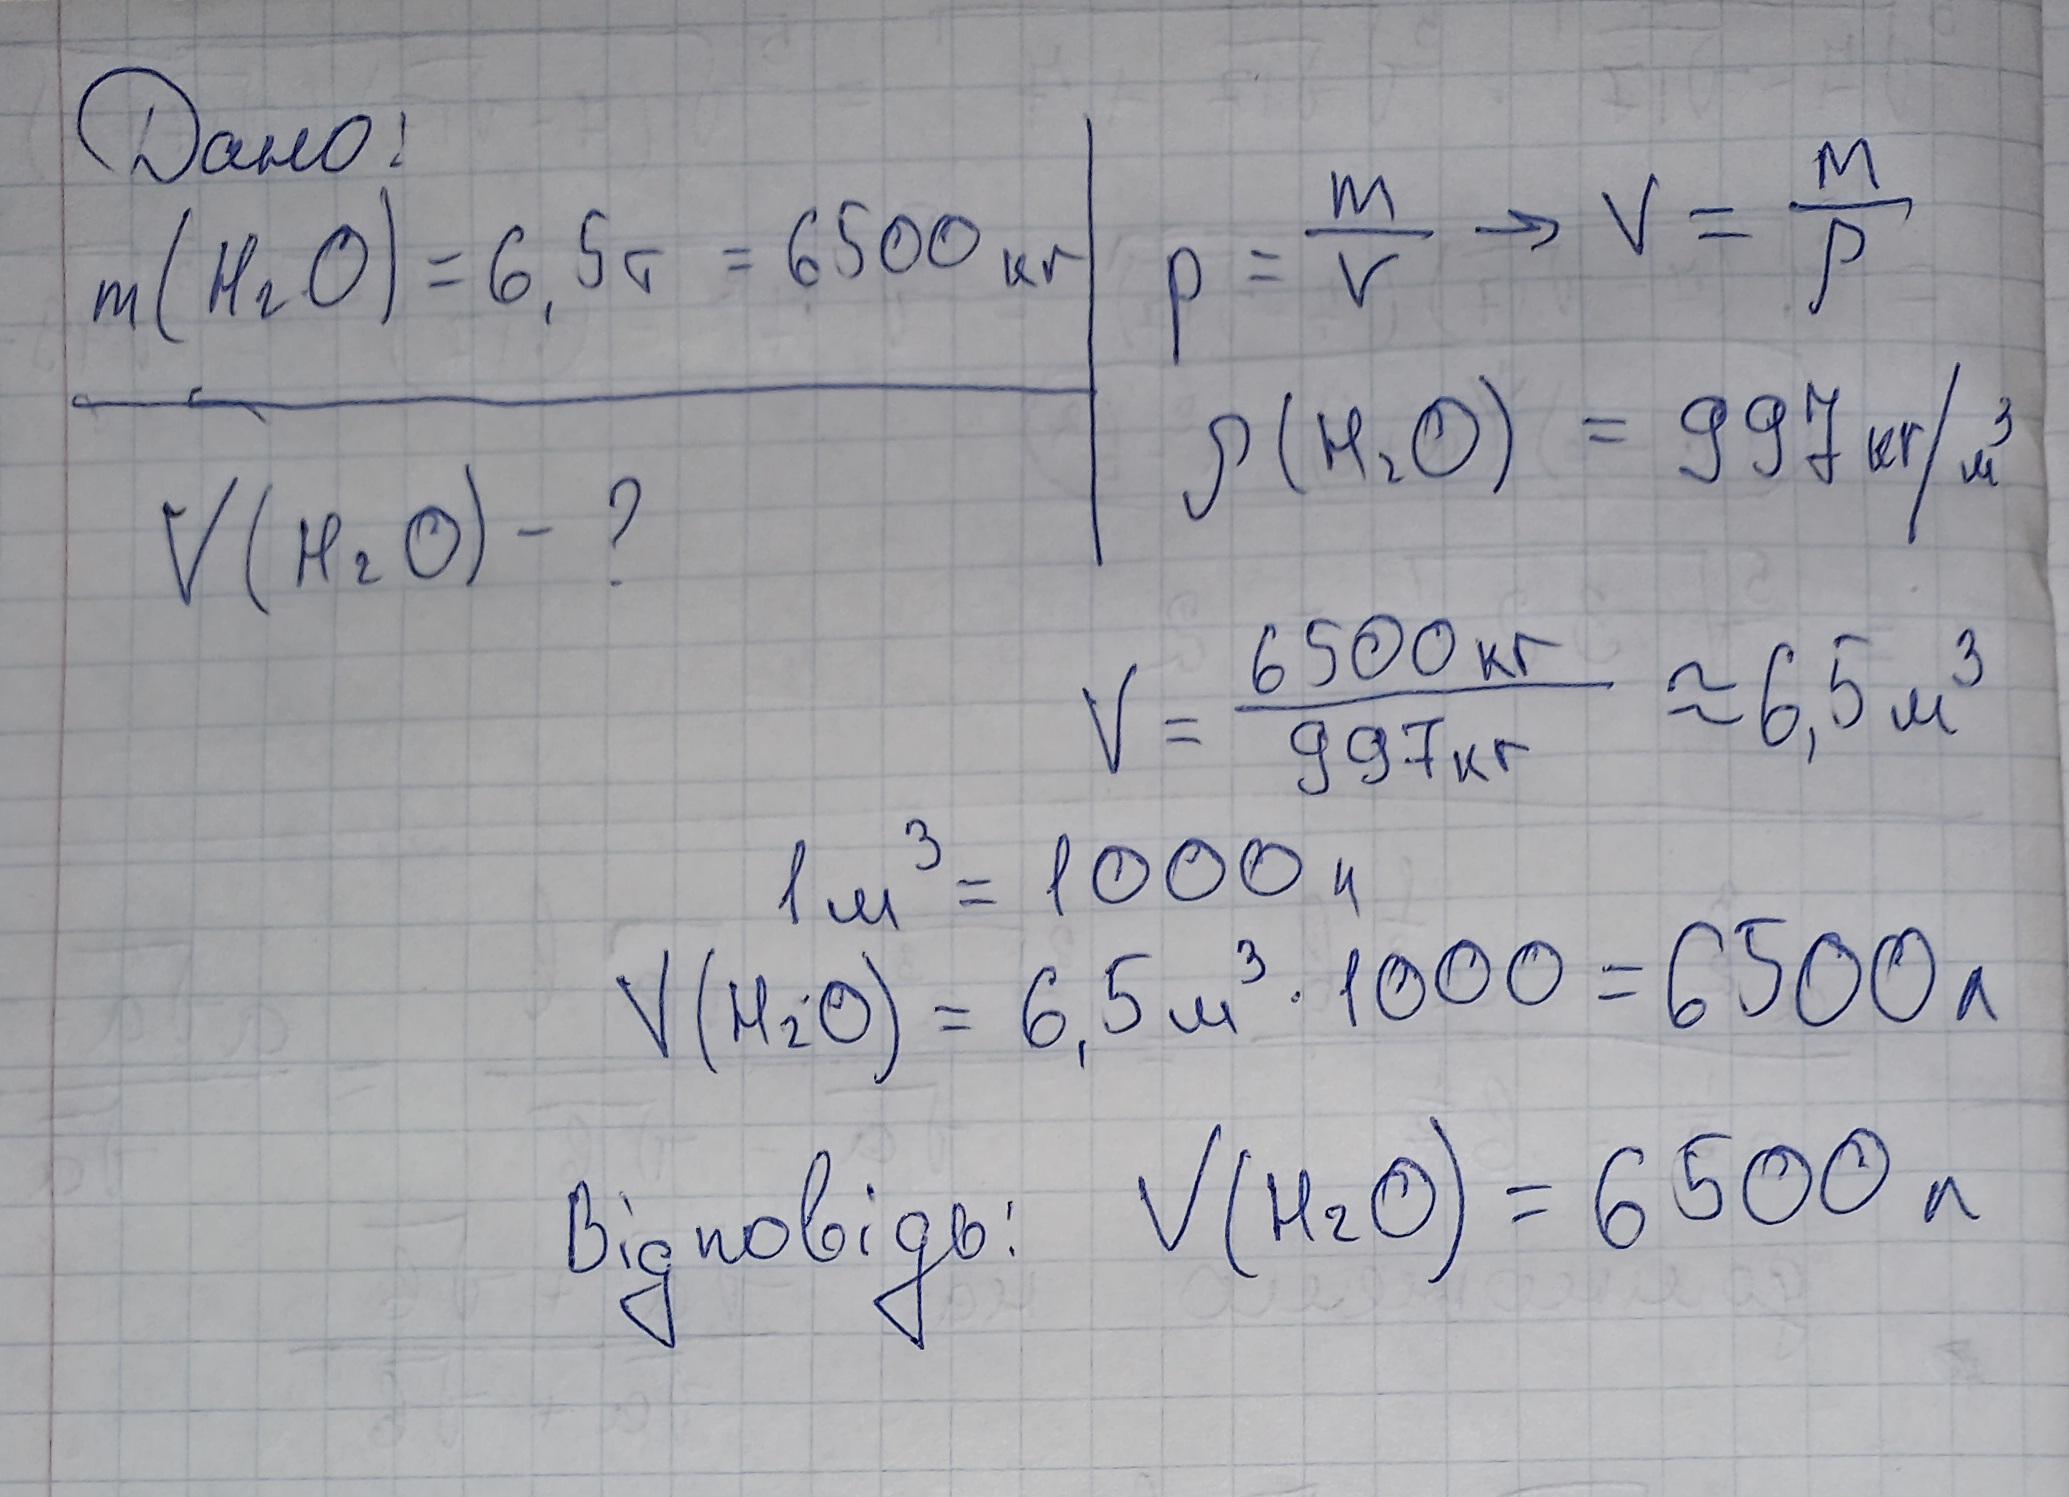 Дано:
m(H₂O) = 6,5т = 6500 кг
V(H₂O) - ?
ρ = m/V → V = m/ρ
ρ(H₂O) = 997 кг/м³
V = 6500кг/997кг ≈ 6,5 м³
1м³ = 1000 л
V(H₂O) = 6,5 м³ · 1000 = 6500 л
Відповідь: V(H₂O) = 6500 л